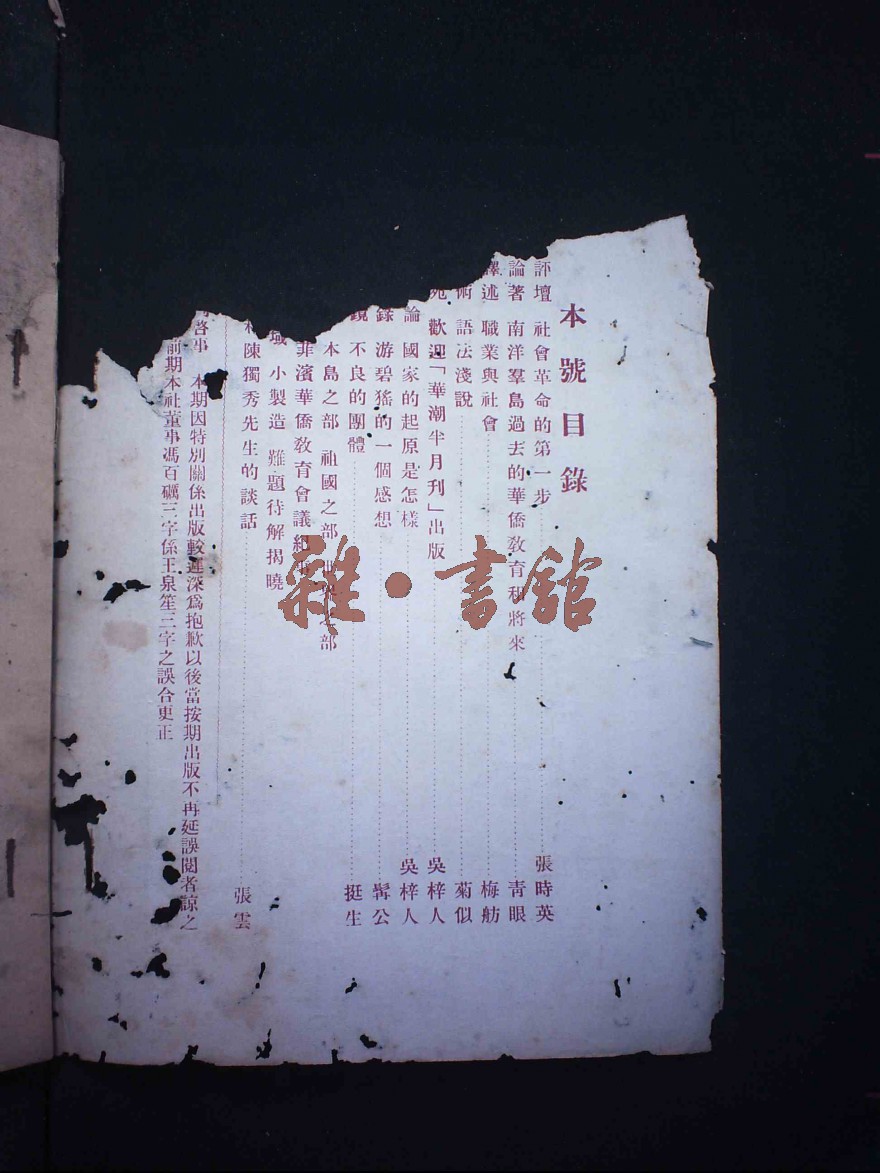 本號目錄
評壇 社會革命的第一步 張時英
論著 南洋羣島過去的華僑教育和將來 青眼
譯述 職業與社會 梅舫
術 語法淺說 菊似
苑 歡迎「華潮半月刊」出版 吳梓人
論 國家的起原是怎樣 吳梓人
錄 游碧瑤的一個感想 髯公
鏡 不良的團體 挺生
本島之部 祖國之部 之部
菲濱華僑教育會議紀
域 小製造 難題待解揭曉
陳獨秀先生的談話 張雲
啓事 本期因特別關係出版較遲深爲抱歉以後當按期出版不再延誤閱者諒之
前期本社董事馮百礪三字係王泉笙三字之誤合更正
雜·書館